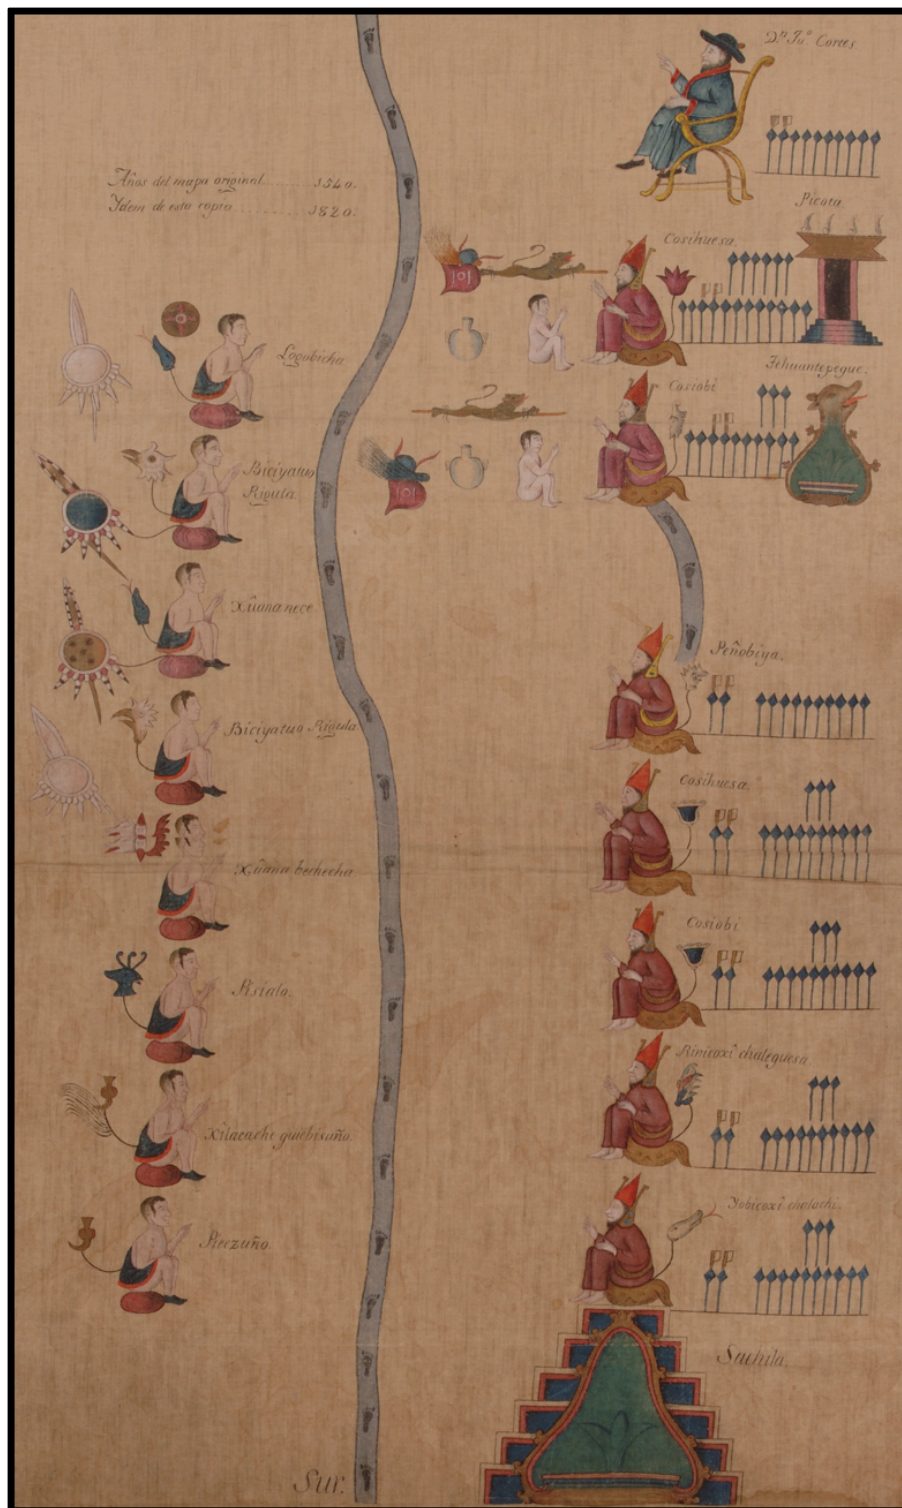 Dn. Juo. Cortes
Años del mapa original ........ 1540.
Ydem de esta copia ........ 1820.
Picota.
Cosihuesa.
Logobicha.
Tehuantepeque.
Cosiobi
Biciyatuo
Rigula.
Xûana nece.
Peñobiya.
Biciyatuo Rigula.
Cosihuesa.
Xûana bechecha
Cosiobi
Pisialo.
Rinicoxî chaleguesa.
Xilacache guiebisuño.
Yobicoxî chalachi.
Piezuño.
Sachila.
Sur.